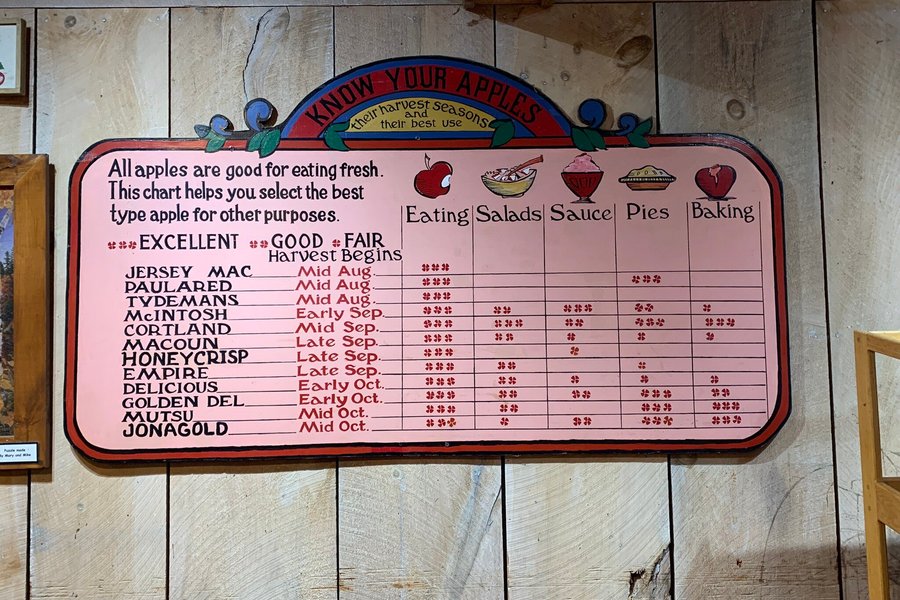 KNOW YOUR APPLES
their harvest seasons
and
their best use
All apples are good for eating fresh.
This chart helps you select the best
type apple for other purposes.
EXCELLENT GOOD FAIR
Eating Salads Sauce Pies Baking
Harvest Begins
JERSEY MAC Mid Aug.
PAULARED Mid Aug.
TYDEMANS Mid Aug.
McINTOSH Early Sep.
CORTLAND Mid Sep.
MACOUN Late Sep.
HONEYCRISP Late Sep.
EMPIRE Late Sep.
DELICIOUS Early Oct.
GOLDEN DEL Early Oct.
MUTSU Mid Oct.
JONAGOLD Mid Oct.
Puzzle made
By Mary and Mike